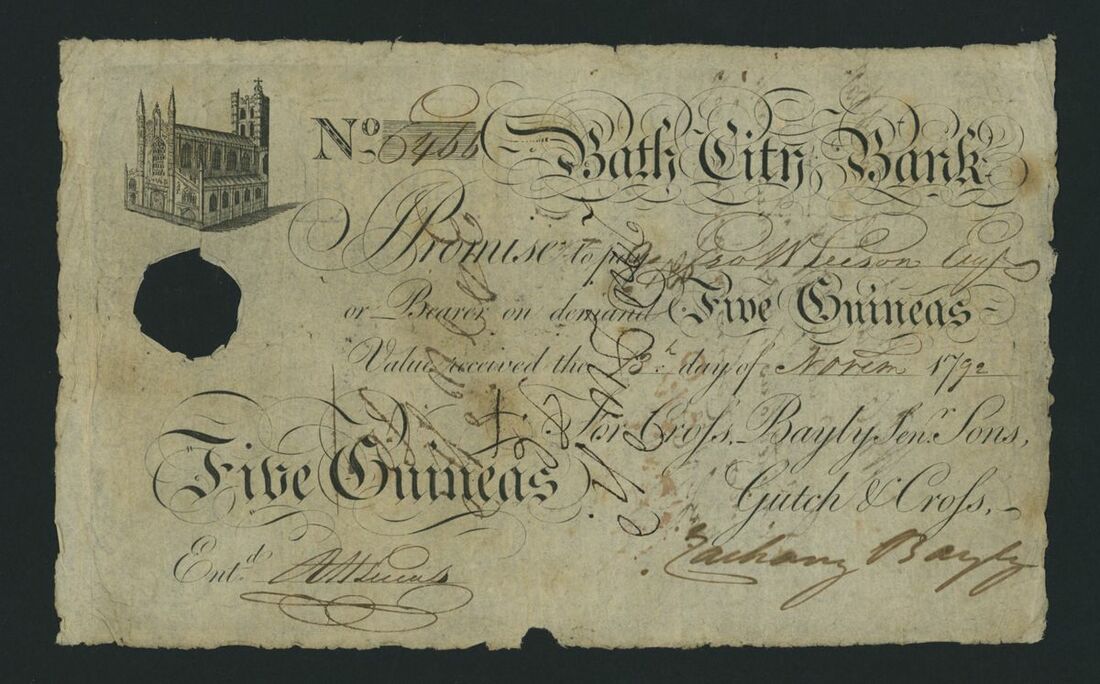 No. 5466 Bath City Bank
I Promise to pay Geo Wilson Esqr
or Bearer on demand Five Guineas
Value received the 13th day of Novem 1792
£ For Cross, Bayly Senr. Sons,
Five Guineas Gutch & Cross,
Entd. Zachary Bayly